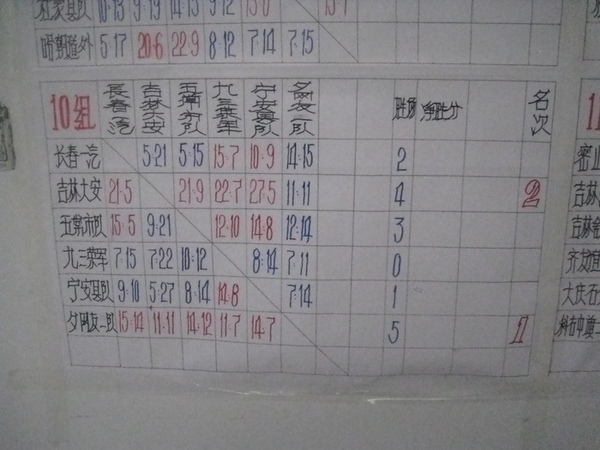 10·13 9·19 14·15 9·12
5·17 20·6 22·9 8·12 7·14 7·15
10组 長春一汽 吉林大安 五常市队 九三荣军 宁安县队 夕网友一队 净胜分 名次
长春一汽 5·21 5·15 15·7 10·9 14·15 2
吉林大安 21·5 21·9 22·7 27·5 11·11 4 2
五常市队 15·5 9·21 12·10 14·8 12·14 3
九三荣军 7·15 7·22 10·12 8·14 7·11 0
宁安县队 9·10 5·27 8·14 14·8 7·14 1
夕网友一队 15·14 11·11 14·12 11·7 14·7 5 1
密山
吉林
吉林
齐友谊
大庆石